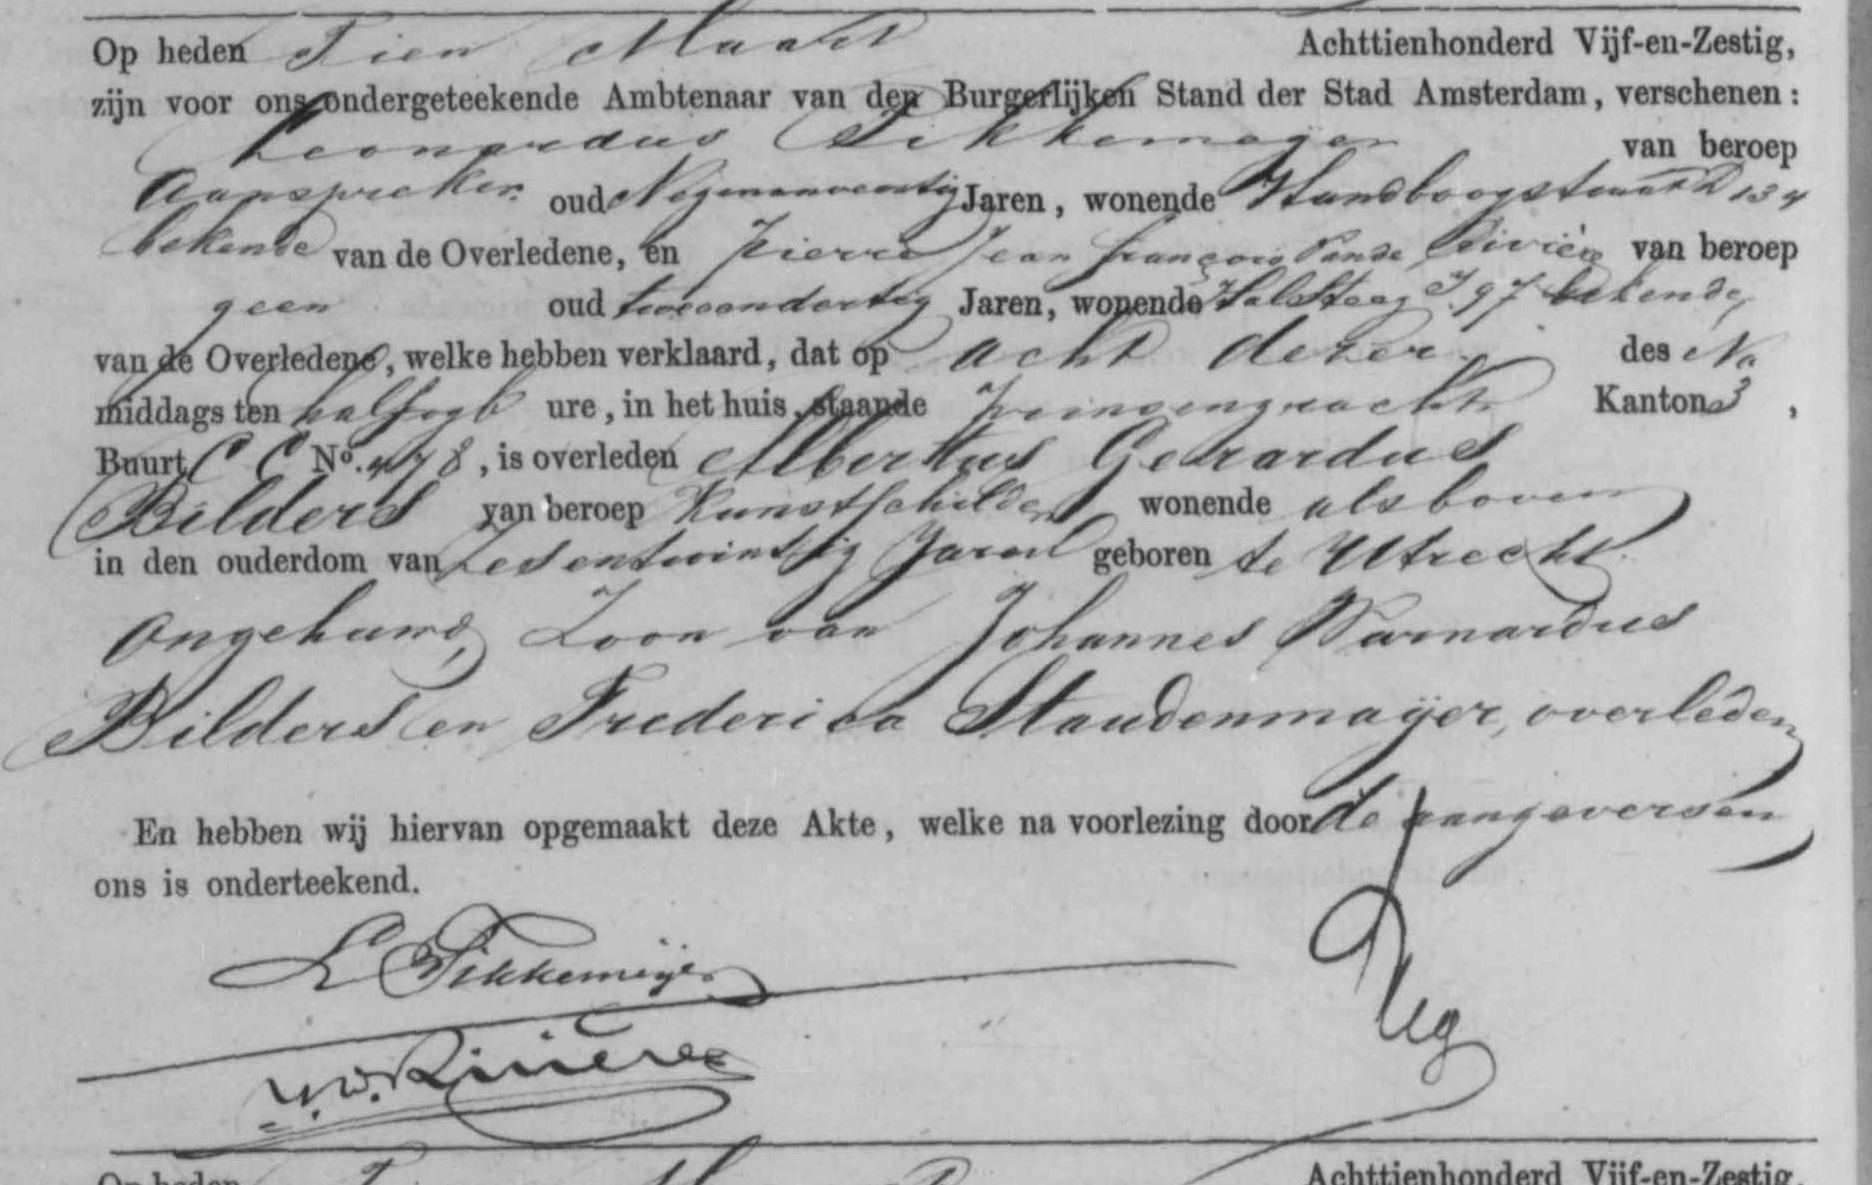 Op heden Tien Maart Achttienhonderd Vijf-en-Zestig,
zijn voor ons ondergeteekende Ambtenaar van den Burgerlijken Stand der Stad Amsterdam, verschenen:
Leonardus Sikkemeijer van beroep
Aanspreker oud Negenenveertig Jaren, wonende Handboogstraat
bekende van de Overledene, en Pierre Jean François van de Rivière van beroep
geen oud tweeendertig Jaren, wonende Halsteeg J 97 bekende,
van de Overledene, welke hebben verklaard, dat op acht dezer des Na
middags ten half ure, in het huis, staande prinsengracht Kanton 3,
Buurt C C No. 478, is overleden Albertus Gerardus
Bilders van beroep Kunstschilder wonende als boven
in den ouderdom van Zesentwintig Jaren geboren te Utrecht.
Ongehuwd, Zoon van Johannes Warnardus
Bilders en Frederica Staudenmaÿer, overleden
En hebben wij hiervan opgemaakt deze Akte, welke na voorlezing door de aangeversen
ons is onderteekend.
L Sikkemeijer
v. d. Rivière
Op heden Achttienhonderd Vijf-en-Zestig,